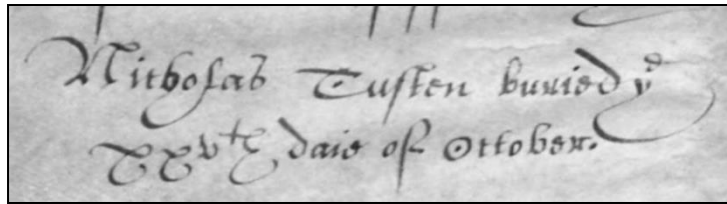 Nicholas Tusten buried yᵉ
xxvth daie of October.